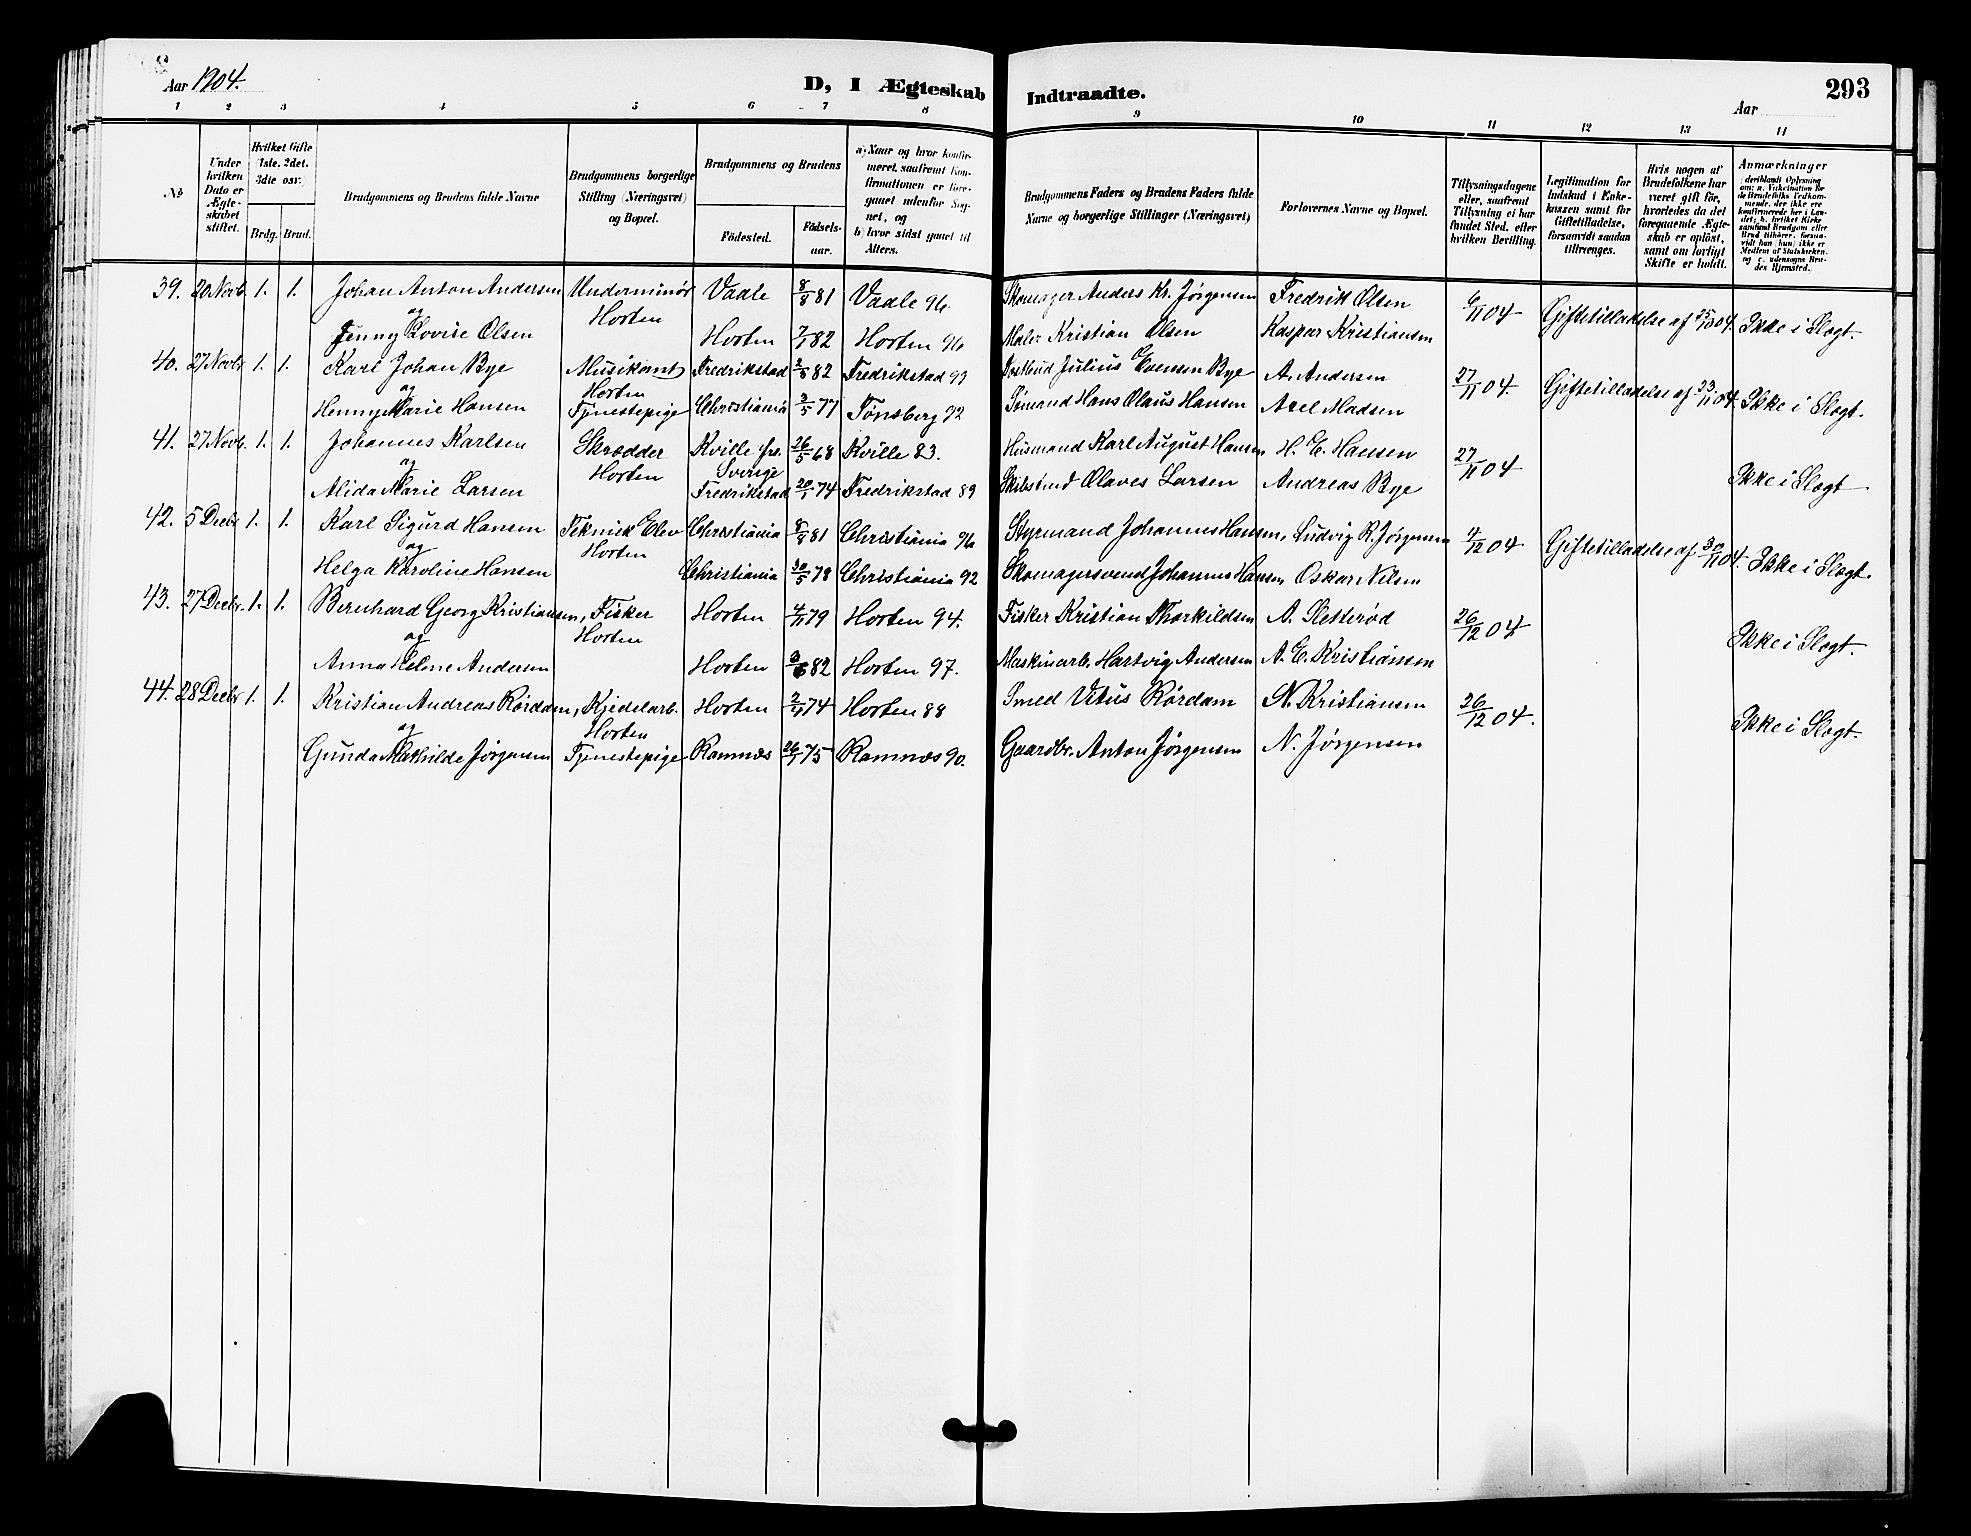 Aar 1904. D, I Ægteskab Indtraadte. Aar 293
1 2 3 4 5 6 7 8 9 10 11 12 13 14
№
Under hvilken Dato er Ægteskabet stiftet.
Hvilket Gifte (1ste, 2det, 3die osv.)
Brdg. Brud.
Brudgommens og Brudens fulde Navne
Brudgommens borgerlige Stilling (Næringsvei) og Bopæl.
Brudgommens og Brudens
Födested. Födselsaar.
a) Naar og hvor konfirmeret, saafremt Konfirmationen er foregaaet udenfor Sognet, og
b) hvor sidst gaaet til Alters.
Brudgommens Faders og Brudens Faders fulde Navne og borgerlige Stillinger (Næringsvei)
Forlovernes Navne og Bopæl.
Tillysningsdagene eller, saafremt Tillysning ei har fundet Sted, efter hvilken Bevilling.
Legitimation for Indskud i Enkekassen samt for Giftetilladelse, forsaavidt saadan tiltrænges.
Hvis nogen af Brudefolkene har været gift för, hvorledes da det foregaaende Ægteskab er oplöst, samt om lovligt Skifte er holdt.
Anmærkninger
39. 20 Novb. 1. 1. Johan Anton Andersen Underminör Vaale 8/8 81 Vaale 96. Skomager Anders Kr. Jørgensen Fredrik Olsen 6/11 04 Giftetilladelse af 25/10 04. Ikke i Slægt.
og Horten
Jenny Lovise Olsen Horten 7/1 82 Horten 96 Maler Kristian Olsen Kaspar Kristiansen
40. 27 Novbr 1. 1. Karl Johan Bye Musikamt Fredrikstad 2/8 82 Fredrikstad 97 Julius Evensen Bye A. Andersen 27/11 04. Giftetilladelse af 23/11 04. Ikke i Slægt.
og Horten
Henny Marie Hansen Tjenestepige Christiania 3/5 77 Tønsberg 92 Sömand Hans Olaus Hansen Axel Madsen
41. 27 Novb. 1. 1. Johannes Karlsen Skrædder Kville pr. 26/5 68 Kville 83. Husmand Karl August Hansen H. E. Hansen 27/11 04 Ikke i Slægt
og Horten Sverige
Alida Marie Larsen Fredrikstad 20/1 74 Fredrikstad 89 Olaves Larsen Andreas Bye
42. 5 Decbr 1. 1. Karl Sigurd Hansen Teknisk Elev Christiania 8/8 81 Christiania 96 Styrmand Johannes Hansen, Ludvig R. Jørgensen 4/12 04 Giftetilladelse af 30/11 04. Ikke i Slægt.
og Horten
Helga Karoline Hansen Christiania 30/5 78 Christiania 92 Skomagersvend Johannes Hansen, Oskar Nilsen
43. 27 Decbr. 1. 1. Bernhard Georg Kristiansen, Fisker Horten 4/11 79 Horten 94. Fisker Kristian Thorkildsen A. Sletterød 26/12 04. Ikke i Slægt.
og Horten
Anna Helene Andersen Horten 3/6 82 Horten 97. Maskinarb. Hartvig Andersen A. E. Kristiansen
44. 28 Decbr 1. 1. Kristian Andreas Rördam, Kjedelarb. Horten 74 Horten 88 Smed Vitus Rördam N. Kristiansen 26/12 04. Ikke i Slægt.
og Horten
Gunda Mathilde Jørgensen Tjenestepige Ramnæs 26/1 75 Ramnæs 90. Gaardbr. Anton Jørgensen N. Jørgensen